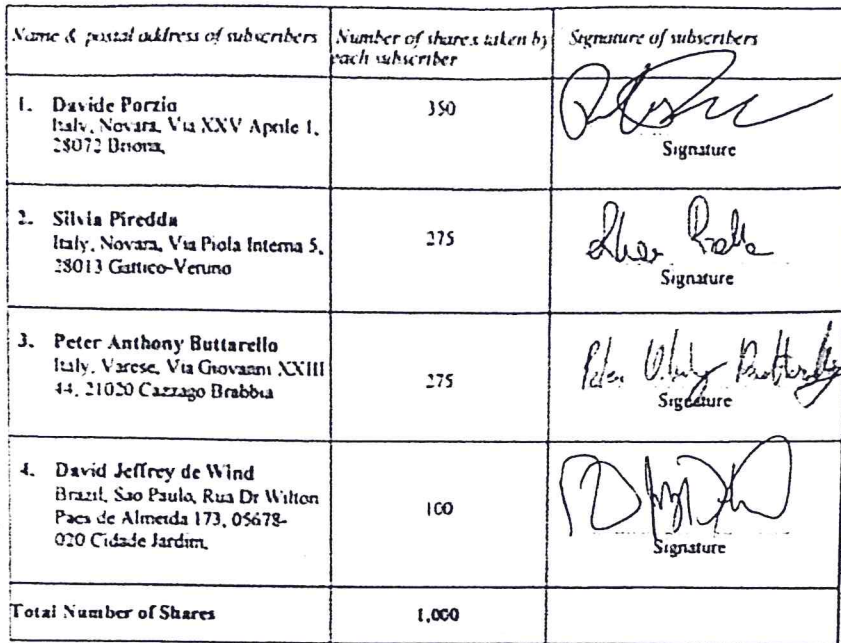 Name & postal address of subscribers
Number of shares taken by
each subscriber
Signature of subscribers
1. Davide Porzio
Italy, Novara, Via XXV Aprile 1,
28072 Briona,
350
Signature
2. Silvia Piredda
Italy, Novara, Via Piola Interna 5,
28013 Gattico-Veruno
275
Signature
3. Peter Anthony Buttarello
Italy, Varese, Via Giovanni XXIII
44, 21020 Cazzago Brabbia
275
Signature
4. David Jeffrey de Wind
Brazil, Sao Paulo, Rua Dr Wilton
Paes de Almeida 173, 05678-
020 Cidade Jardim,
100
Signature
Total Number of Shares
1,000